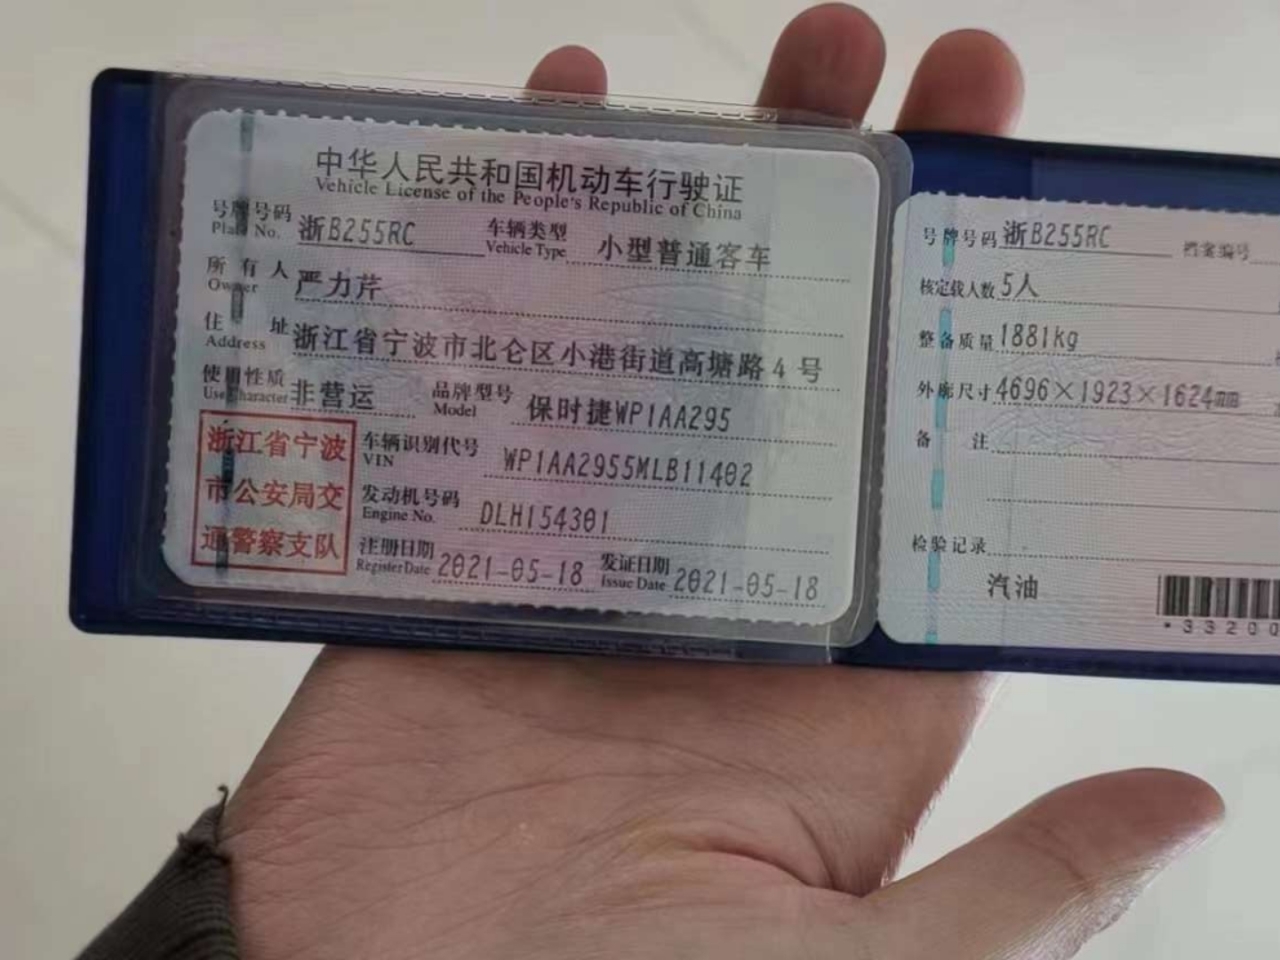 中华人民共和国机动车行驶证
Vehicle License of the People's Republic of China
号牌号码 浙B255RC 车辆类型 小型普通客车
Plate No. Vehicle Type
所有人 严力芹
Owner
住址 浙江省宁波市北仑区小港街道高塘路4号
Address
使用性质 非营运 品牌型号 保时捷WP1AA295
Use Character Model
浙江省宁波
市公安局交
通警察支队
车辆识别代号 WP1AA2955MLB11402
VIN
发动机号码 DLH154301
Engine No.
注册日期 2021-05-18 发证日期 2021-05-18
Register Date Issue Date
号牌号码 浙B255RC 档案编号
核定载人数 5人
整备质量 1881kg
外廓尺寸 4696×1923×1624mm
备注
检验记录
汽油
*33200